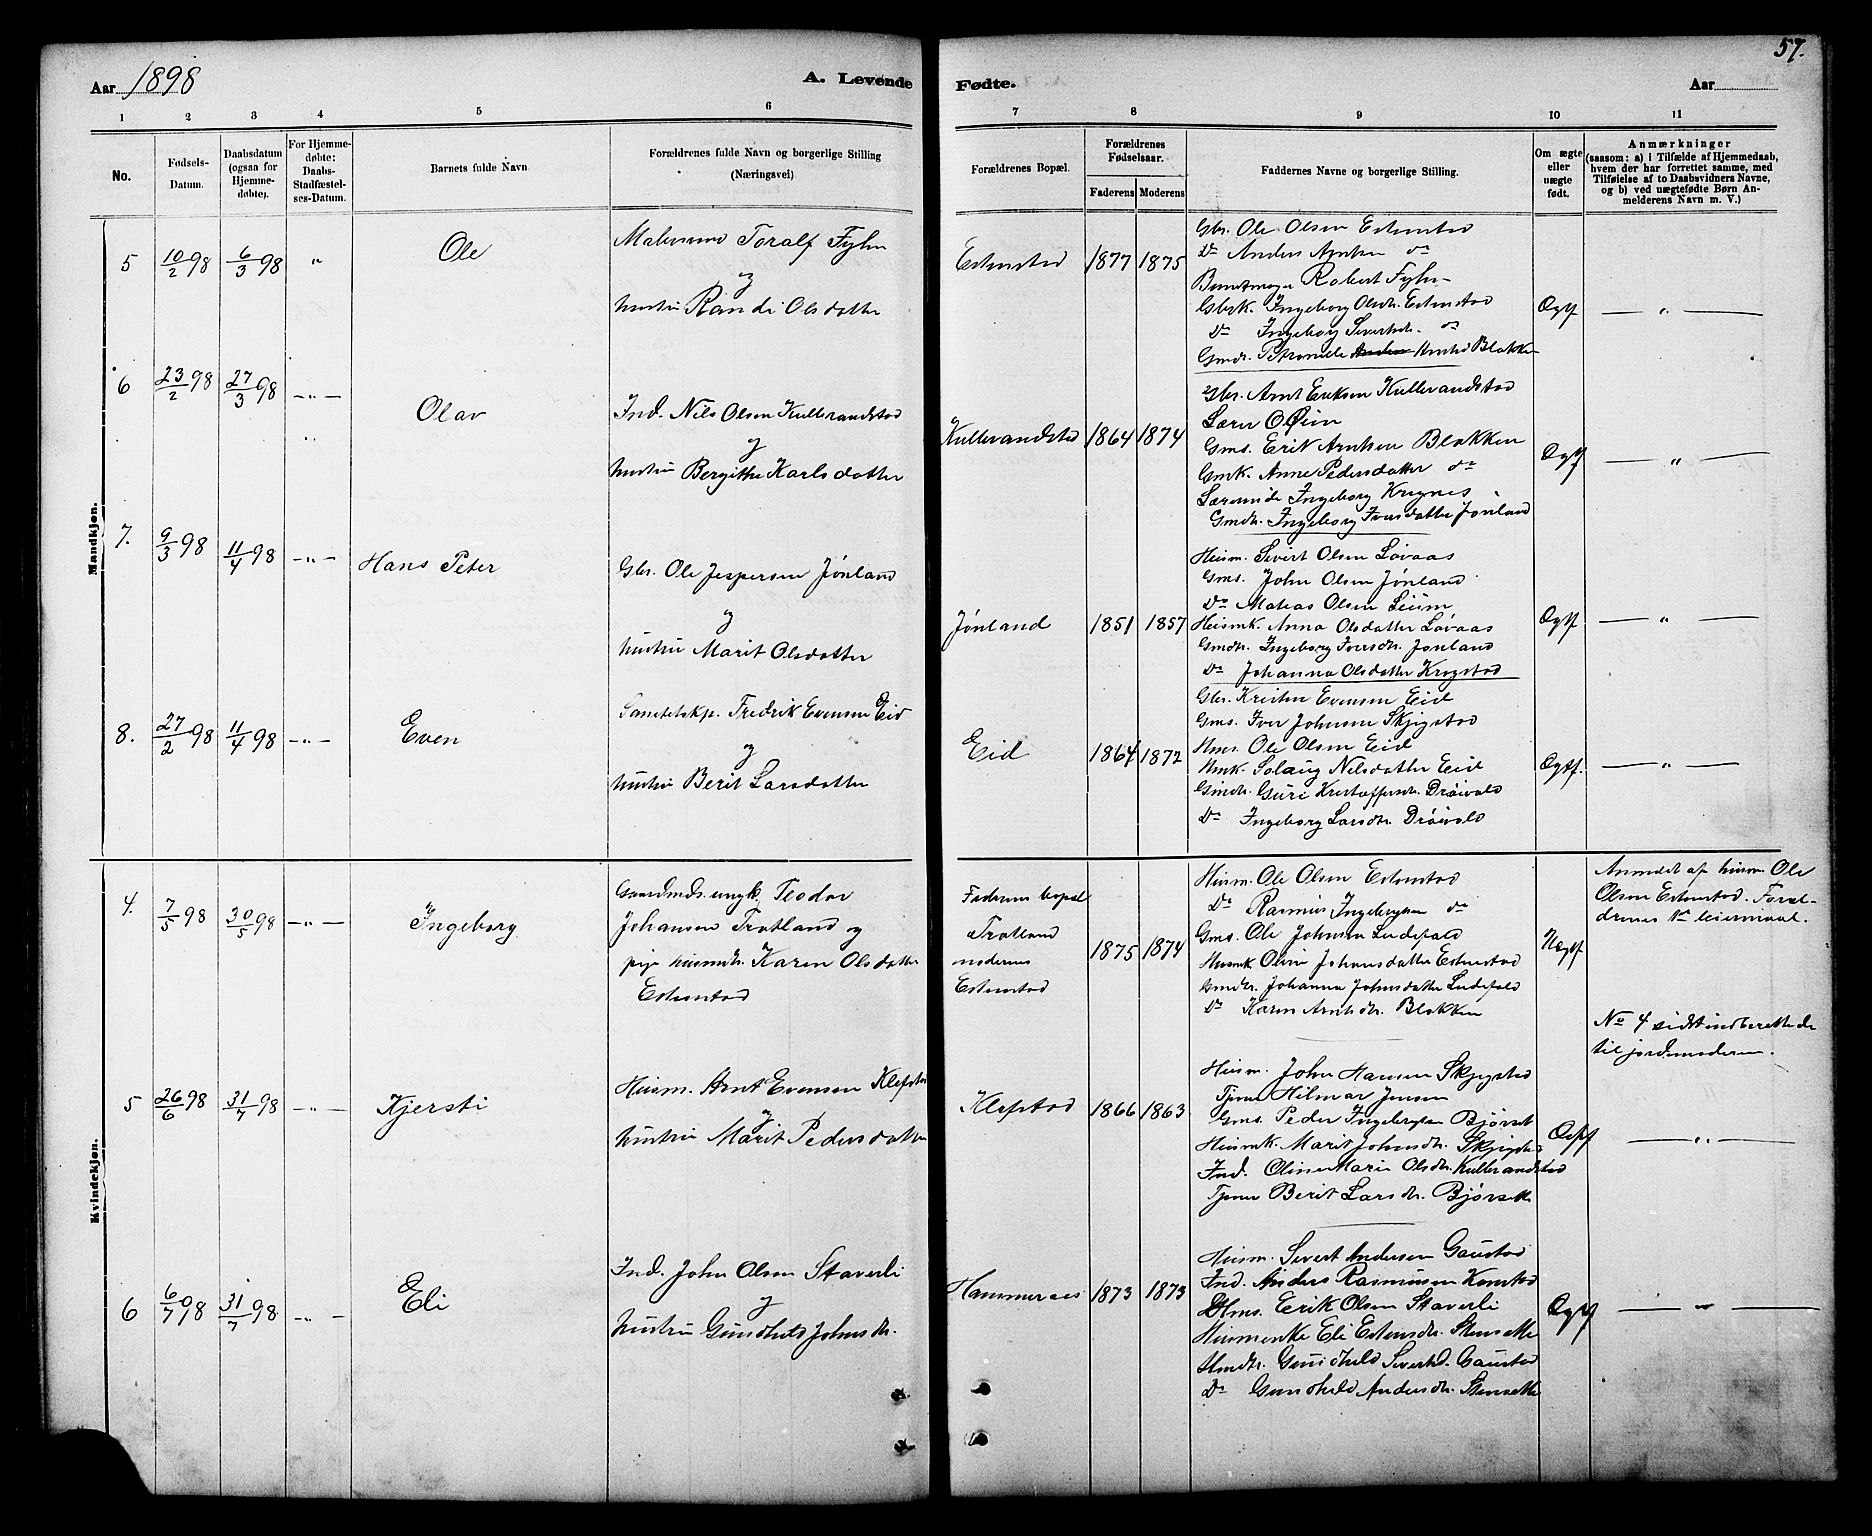 Aar 1898
A. Levende
Fødte.
Aar
57.
1 2 3 4 5 6 7 8 9 10 11
No.
Fødsels-
Datum.
Daabsdatum
(ogsaa for
Hjemme-
døbte).
For Hjemme-
døbte:
Daabs-
Stadfæstel-
ses-Datum.
Barnets fulde Navn
Forældrenes fulde Navn og borgerlige Stilling
(Næringsvei)
Forældrenes Bopæl.
Forældrenes
Fødselsaar.
Faderens Moderens
Faddernes Navne og borgerlige Stilling.
Om ægte
eller
uægte
født.
Anmærkninger
(saasom: a) i Tilfælde af Hjemmedaab,
hvem der har forrettet samme, med
Tilføielse af to Daabsvidners Navne,
og b) ved uægtefødte Børn An-
melderens Navn m. V.)
Mandkjøn.
5 10/2 98 6/3 98 " Ole
Toralf Fyhn
og
hustru Randi Olsdatter
Estenstad 1877 1875
Gbr. Ole Olsen Estenstad
Do Anders Arntsen do
Robert Fyhn
Gbrk. Ingeborg Olsdr. Estenstad
Do Ingeborg Sivertsdr. do
Gmdr. Petronele Arntsd Blokken
Ægtf — " —
6 23/2 98 27/3 98 — " — Olav
Ind. Nils Olsen Kullerandstad
og
hustru Bergitha Karlsdatter
Kullerandstad 1864 1874
Gbr. Arnt Eriksen Kullerandstad
Lærer O Øien
Gms. Erik Arntsen Blokken
Gmk. Anne Pedersdatter do
Ingeborg Krognes
Gmdr. Ingeborg Iversdatter Jønland
Ægtf — " —
7. 9/3 98 11/4 98 — " — Hans Peter
Gbr. Ole Jespersen Jønland
og
hustru Marit Olsdatter
Jønland 1851 1857
Husm. Sivert Olsen Løvaas
Gms. John Olsen Jønland
Do Matias Olsen Leium
Husmk. Anna Olsdatter Løvaas
Gmdr. Ingeborg Iversdr. Jønland
Do Johanna Olsdatter Krogstad
Ægtf — " —
8. 27/2 98 11/4 98 — " — Even
Fredrik Evensen Eid
og
hustru Berit Larsdatter
Eid 1864 1872
Gbr. Kristen Evensen Eid
Gms. Iver Johnsen Skjegstad
Hms. Ole Olsen Eid
Hmk. Solaug Nilsdatter Eid
Gmdr. Guri Kristoffersdr. Drøivold
Do Ingeborg Larsdr. Drøivold
Ægtf. — " —
Kvindekjøn.
4. 7/5 98 30/5 98 — " — Ingeborg
Gaardmds. ungk. Teodor
Johansen Trotland og
pige husmdr. Karen Olsdatter
Estenstad
Faderens bopæl
Trotland
moderens
Estenstad
1875 1874
Husm. Ole Olsen Estenstad
Do Rasmus Ingebrigtsen do
Gms. Ole Johnsen Lindefald
Husmk Oline Johansdatter Estenstad
Gmdr. Johanna Johnsdatter Lindefald
Do Karen Arntsdr. Blokken
Uægtf
Anmeldt af husm Ole
Olsen Estenstad. Foræl-
drenes 1ste leiermaal.
No 4 sidst indberettede
til jordemoderen.
5 26/6 98 31/7 98 — " — Kjersti
Husm. Arnt Evensen Klefstad
og
hustru Marit Pedersdatter
Klefstad 1866 1863
Husm. John Hansen Skjegstad
Tjener Hilmar Jensen
Gms. Peder Ingebrigtsen Bjørset
Husmk. Marit Johnsdr. Skjegstad
Ind. Oline Marie Olsdr. Kullerandstad
Tjener Berit Larsdr. Bjørsett
Ægtf — " —
6 6/7 98 31/7 98 — " — Eli
Ind. John Olsen Staverli
og
hustru Gundhild Johnsdr.
Hammernes 1873 1873
Husm. Sivert Andersen Gaustad
Ind. Anders Rasmussen Konstad
Hms. Erik Olsen Staverli
Husmenke Eli Estensdr. Stensette
Hmdr. Gunhild Sivertsd. Gaustad
Do Gundhild Andersdr. Stensette
Ægtf — " —